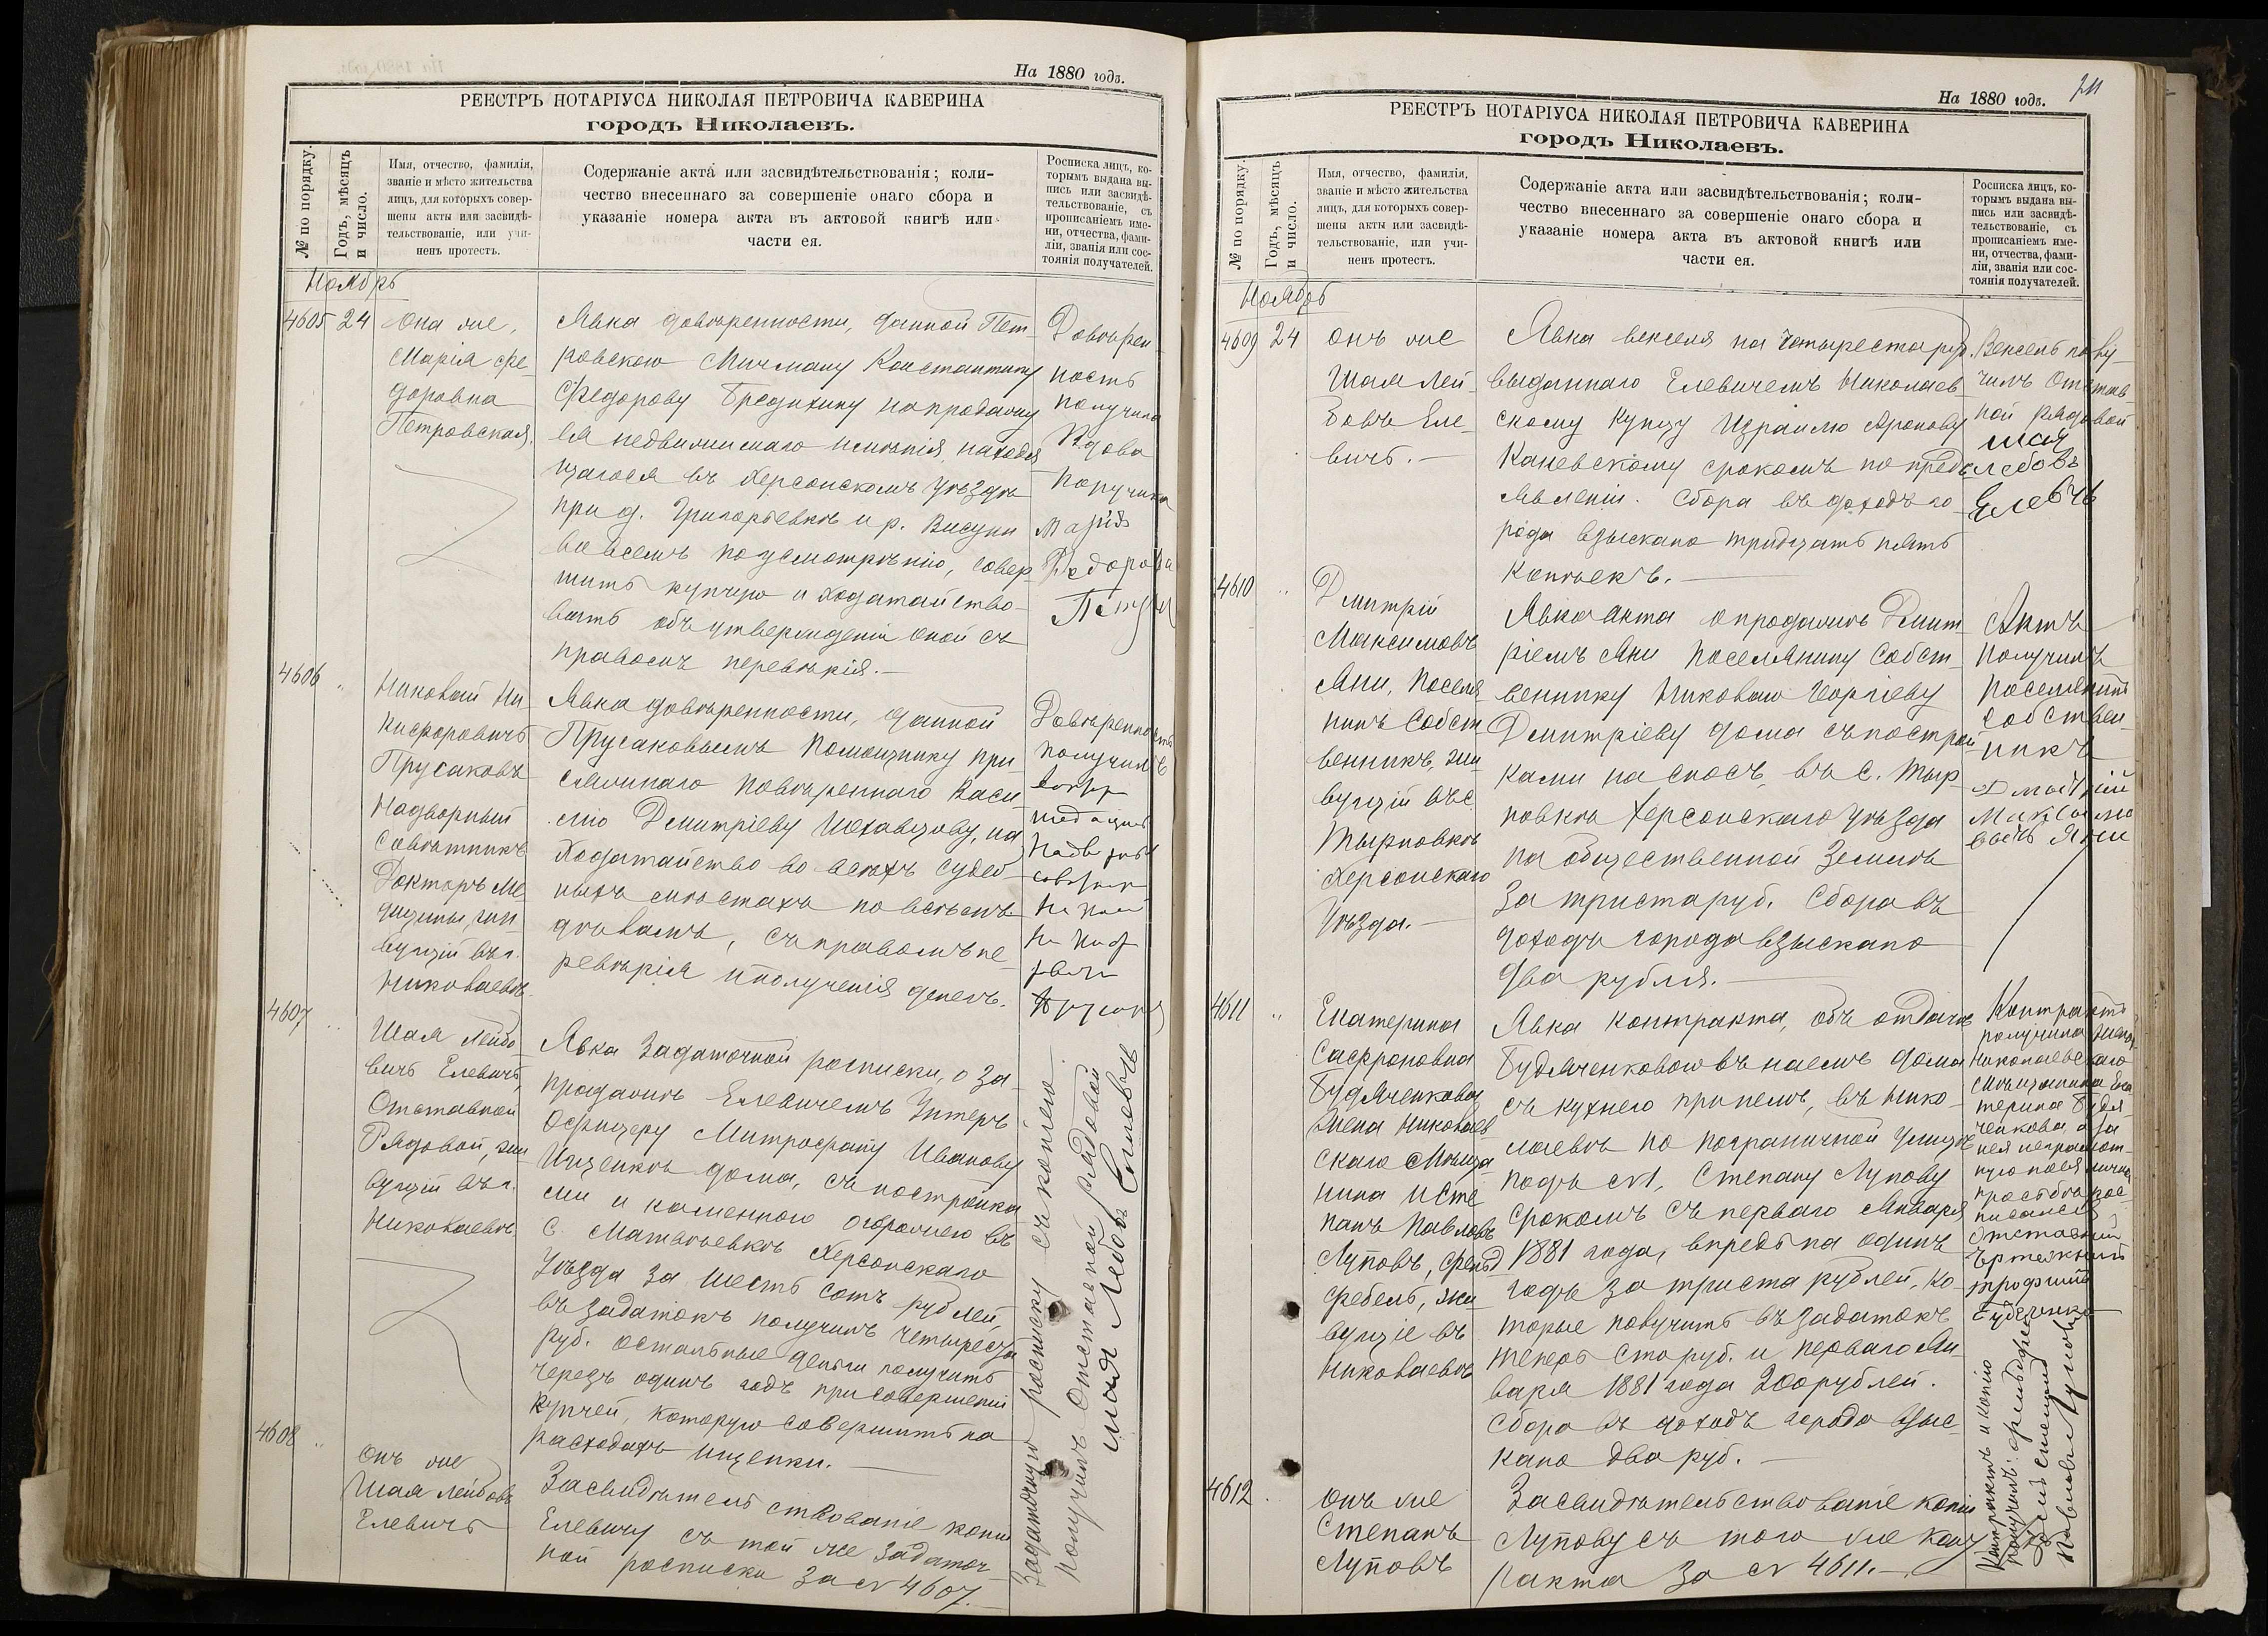 На 1880 годъ.
РЕЕСТРЪ НОТАРІУСА НИКОЛАЯ ПЕТРОВИЧА КАВЕРИНА
городъ Николаевъ.
№ по порядку.
Годъ, мѣсяцъ
и число.
Имя, отчество, фамилія,
званіе и мѣсто жительства
лицъ, для которыхъ совер-
шены акты или засвидѣ-
тельствованіе, или учи-
ненъ протестъ.
Содержаніе акта или засвидѣтельствованія; коли-
чество внесеннаго за совершеніе онаго сбора и
указаніе номера акта въ актовой книгѣ или
части ея.
Росписка лицъ, ко-
торымъ выдана вы-
пись или засвидѣ-
тельствованіе, съ
прописаніемъ име-
ни, отчества, фами-
ліи, званія или сос-
тоянія получателей.
Ноябрь
4605 24
Она же,
Марія Ѳе-
доровна
Петровская.
Явка довѣренности, данной Пет-
ровскою Мичману Константину
Федорову Бредихину на продажу
ея недвижимаго имѣнія находя
щагося въ Херсонскомъ Уѣздѣ
при д. Григорьевкѣ и р. Висуни
во всемъ по усмотрѣнію, совер
шить купчую и ходатайство-
вать объ утвержденіи оной съ
правомъ перевѣрія.—
Довѣрен
ность
получила
Вдова
Поручика
Марія
Федорова
4606 "
Николай Ни-
кифоровичъ
Прусаковъ
Надворный
Совѣтникъ
Докторъ Ме
дицины, жи-
вущій въ г.
Николаевѣ.
Явка довѣренности, данной
Прусаковымъ Помощнику при-
сяжнаго повѣреннаго Васи
лію Дмитріеву Шехавцову, на
ходатайство во всѣхъ судеб-
ныхъ мѣстахъ по всѣмъ
дѣламъ, съ правомъ пе-
ревѣрія и полученія денегъ.
Довѣренность
получилъ
4607 "
Шая Лейбо-
вичъ Елевичъ,
Отставной
Рядовой, жи
вущій въ г.
Николаевѣ.
Явка Задаточной росписки, о за-
продажѣ Елевичемъ Унтеръ
Офицеру Митрофану Иванову
Ищенкѣ дома, съ постройка
ми и каменною огорожею въ
с. Матвѣевкѣ Херсонскаго
Уѣзда за шесть сотъ рублей,
въ задатокъ получилъ четыреста
руб. остальные деньги получить
чрезъ одинъ годъ при совершеніи
купчей, которую совершить на
расходахъ Ищенки.—
4608 "
Онъ же
Шая Лейбовъ
Елевичъ
Засвидѣтельствованіе копіи
Елевичу съ той же Задаточ-
ной росписки за № 4607.—
Задаточную росписку съ копіею
получилъ Отставной рядовой
шая Лебовъ Елеовъ
На 1880 годъ.
РЕЕСТРЪ НОТАРІУСА НИКОЛАЯ ПЕТРОВИЧА КАВЕРИНА
городъ Николаевъ.
№ по порядку.
Годъ, мѣсяцъ
и число.
Имя, отчество, фамилія,
званіе и мѣсто жительства
лицъ, для которыхъ совер-
шены акты или засвидѣ-
тельствованіе, или учи-
ненъ протестъ.
Содержаніе акта или засвидѣтельствованія; коли-
чество внесеннаго за совершеніе онаго сбора и
указаніе номера акта въ актовой книгѣ или
части ея.
Росписка лицъ, ко-
торымъ выдана вы-
пись или засвидѣ-
тельствованіе, съ
прописаніемъ име-
ни, отчества, фами-
ліи, званія или сос-
тоянія получателей.
Ноябрь
4609 24
Онъ же
Шая Лей
бовъ Еле-
вичъ.—
Явка векселя на четыреста руб.
выданнаго Елевичемъ Николаев
скому купцу Израилю Аронову
Каневскому срокомъ по предъ
явленіи. Сбора въ доходъ го-
рода взыскано тридцать пять
копѣекъ.—
Вексель полу
чилъ Отстав-
ной рядовой
шая
лебовъ
Елевчъ
4610 "
Дмитрій
Максимовъ
Яни, Поселя
нинъ Собст
венникъ, жи-
вущій въ с.
Тырновкѣ
Херсонскаго
Уѣзда.—
Явка акта о продажѣ Дмит
ріемъ Яни Поселянину Собст-
веннику Николаю Георгіеву
Дмитріеву дома съ построй
ками на сносъ, въ с. Тыр-
новкѣ Херсонскаго Уѣзда
на общественной Землѣ
за триста руб. Сбора въ
доходъ города взыскано
два рубля.—
Актъ
получилъ
поселянинъ
собствен-
никъ
Дмитрій
Максимо
вичъ Яни
4611 "
Екатерина
Сафроновна
Будяченкова
жена Николаев
скаго Мѣща
нина и Сте
панъ Павловъ
Луповъ, фельд
фебель, жи-
вущіе въ
Николаевѣ
Явка контракта, объ отдачѣ
Будяченковою въ наемъ дома
съ кухнею при немъ, въ Нико-
лаевѣ по пограничной улицѣ
подъ № 1, Степану Лупову
срокомъ съ перваго Января
1881 года, впредь на одинъ
годъ за триста рублей, ко-
торые получить въ задатокъ
теперь сто руб. и перваго Ян-
варя 1881 года 200 рублей.
Сбора въ доходъ города взыс-
кано два руб.—
Контрактъ
получила жена
Николаевскаго
мѣщанина Ека
терина Будя-
ченкова, а за
нея неграмот-
ную по ея личной
просьбѣ рос-
писался
отставной
4612 "
Онъ же
Степанъ
Луповъ
Засвидѣтельствованіе копіи
Лупову съ того же конт
ракта за № 4611.—
Контрактъ и копію
получилъ: фельдфе-
бель Степанъ
Павловъ Луповъ